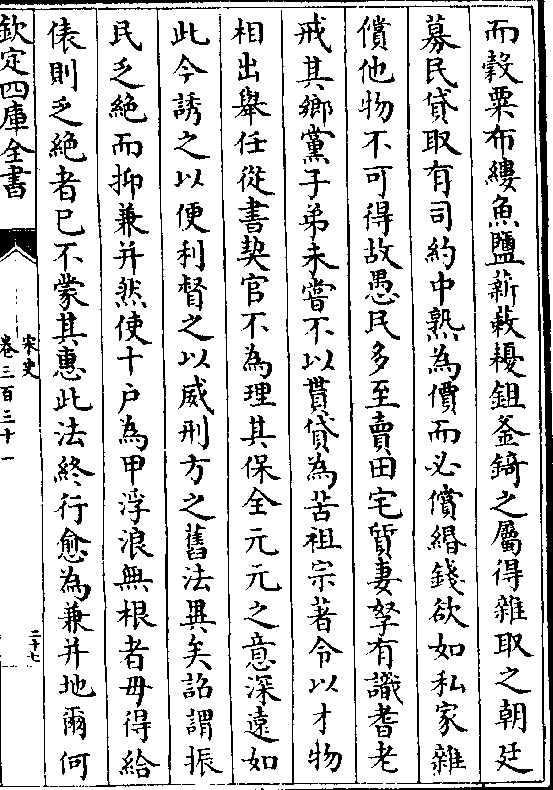 而穀粟布縷魚鹽薪蔌耰鉏釜錡之屬得雜取之朝廷
募民貸取有司約中熟為價而必償緡錢欲如私家雜
償他物不可得故愚民多至賣田宅質妻孥有識耆老
戒其鄉黨子弟未嘗不以貰貸為苦祖宗著令以才物
相出舉任從書契官不為理其保全元元之意深遠如
此今誘之以便利督之以威刑方之舊法異矣詔謂振
民乏絶而抑兼并然使十戶為甲浮浪無根者毋得給
俵則乏絶者已不蒙其惠此法終行愈為兼并地爾何
欽定四庫全書
宋史
卷三百三十一
二十七